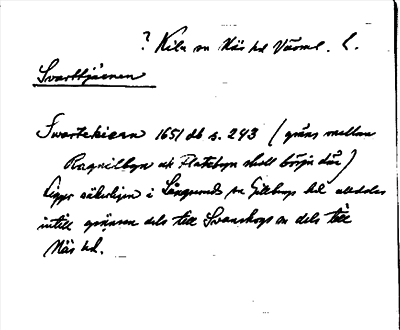 ? Kila sn Näs hd Värml. L.
Svarttjärnen
Swartekiern 1651 db s. 243 (gräns mellan
Ragnilbyn och Flatebyn skall börja där)
Ligger säkerligen i Långserud sn Gillbergs hd alldeles
intill gränsen dels till Svanskogs sn dels till
Näs hd.